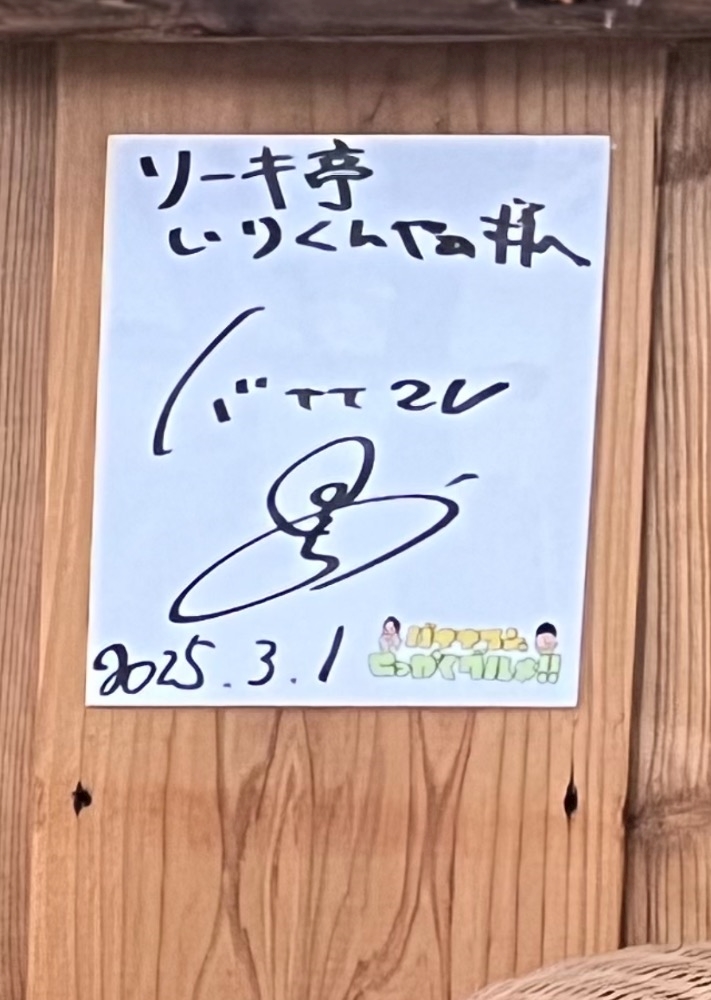 ソーキ亭
いりくんてぃ様
バナナマン
2025.3.1
バナナマンの
せっかくグルメ!!